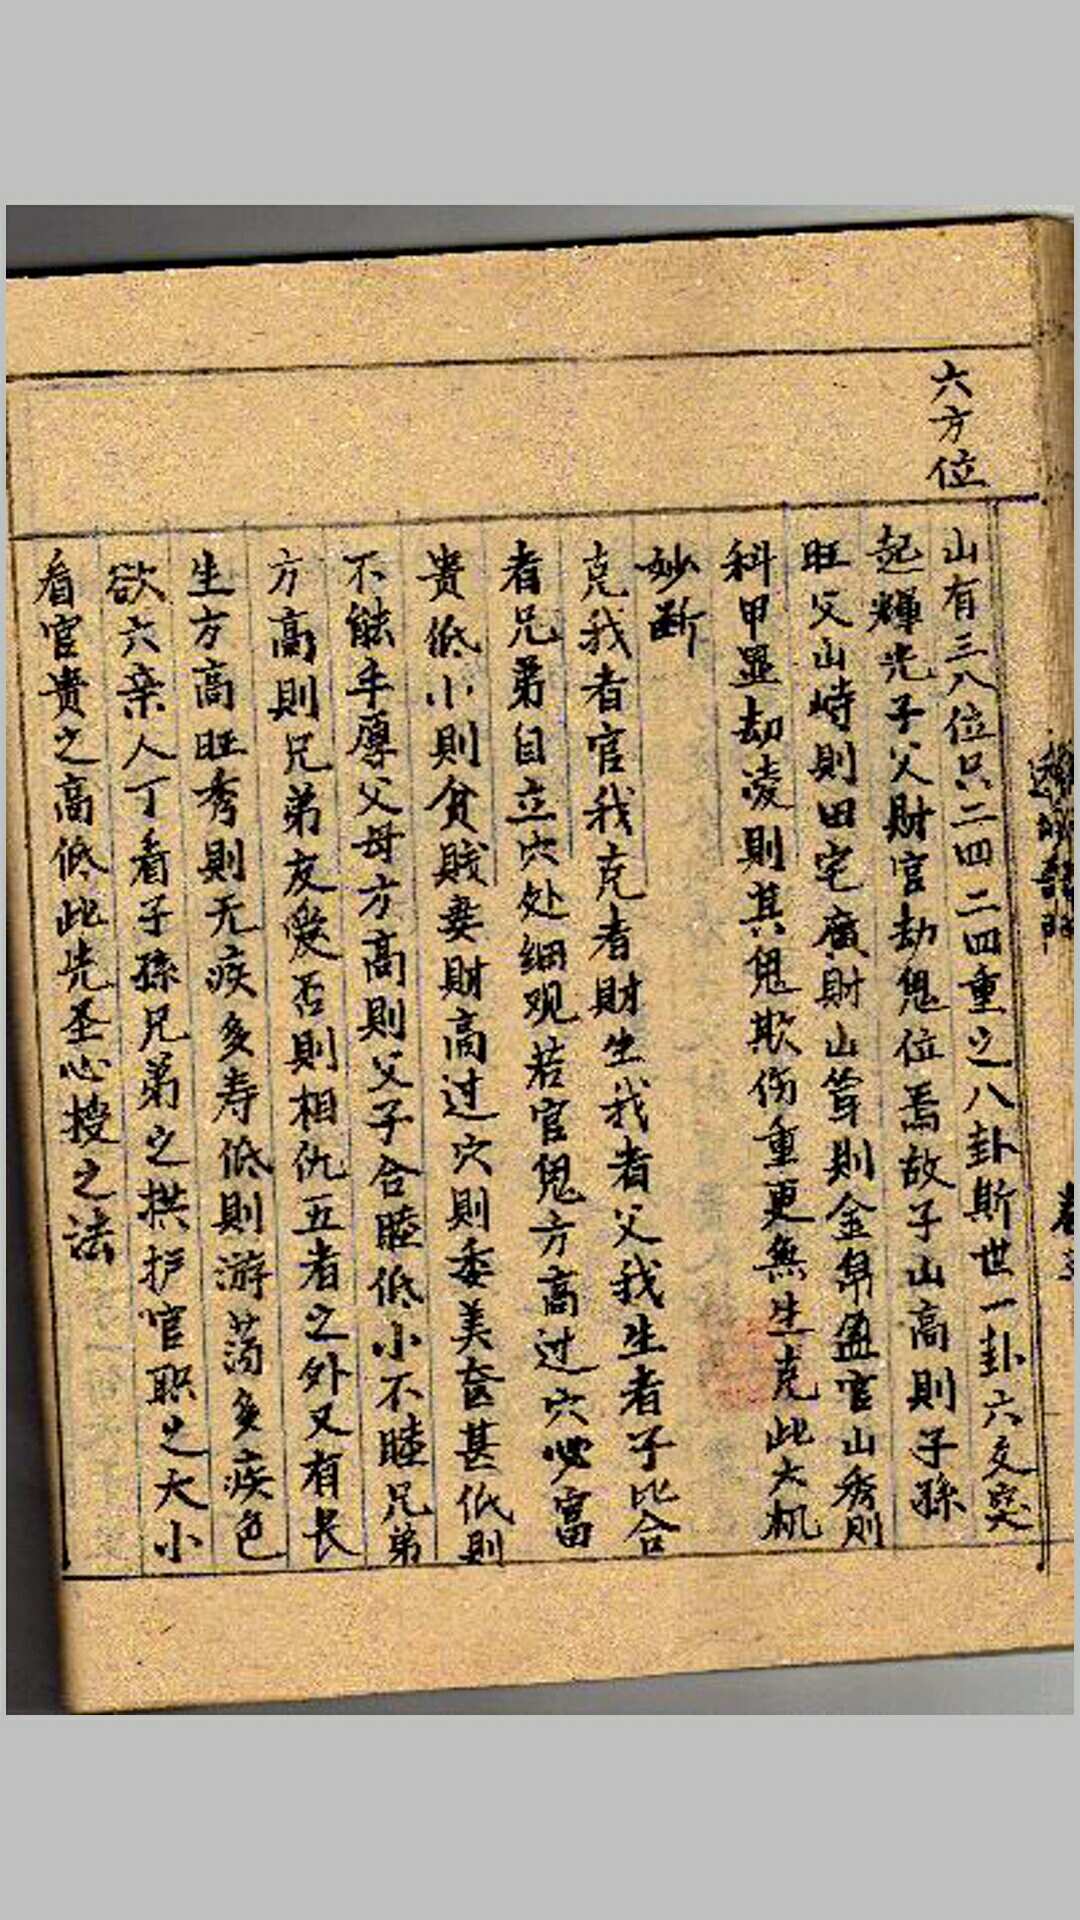 六方位
山有三八位只二四二四重之八卦斯世一卦六爻突
起輝光子父財官劫鬼位焉故子山高則子孫
旺父山峙則田宅廣財山聳則金帛盈官山秀則
科甲显劫凌則其鬼欺伤重更無生克此大机
妙断
克我者官我克者財生我者父我生者子比合
者兄弟自立穴处細观若官鬼方高过穴必富
貴低小則貧賎妻財高过穴則委美奩甚低則
不能手厚父母方高則父子合睦低小不睦兄弟
方高則兄弟友爱否則相仇五者之外又有長
生方高旺秀則无疾多寿低則游荡多疾色
欲六亲人丁看子孫兄弟之拱护官职之大小
看官貴之高低此先圣心授之法